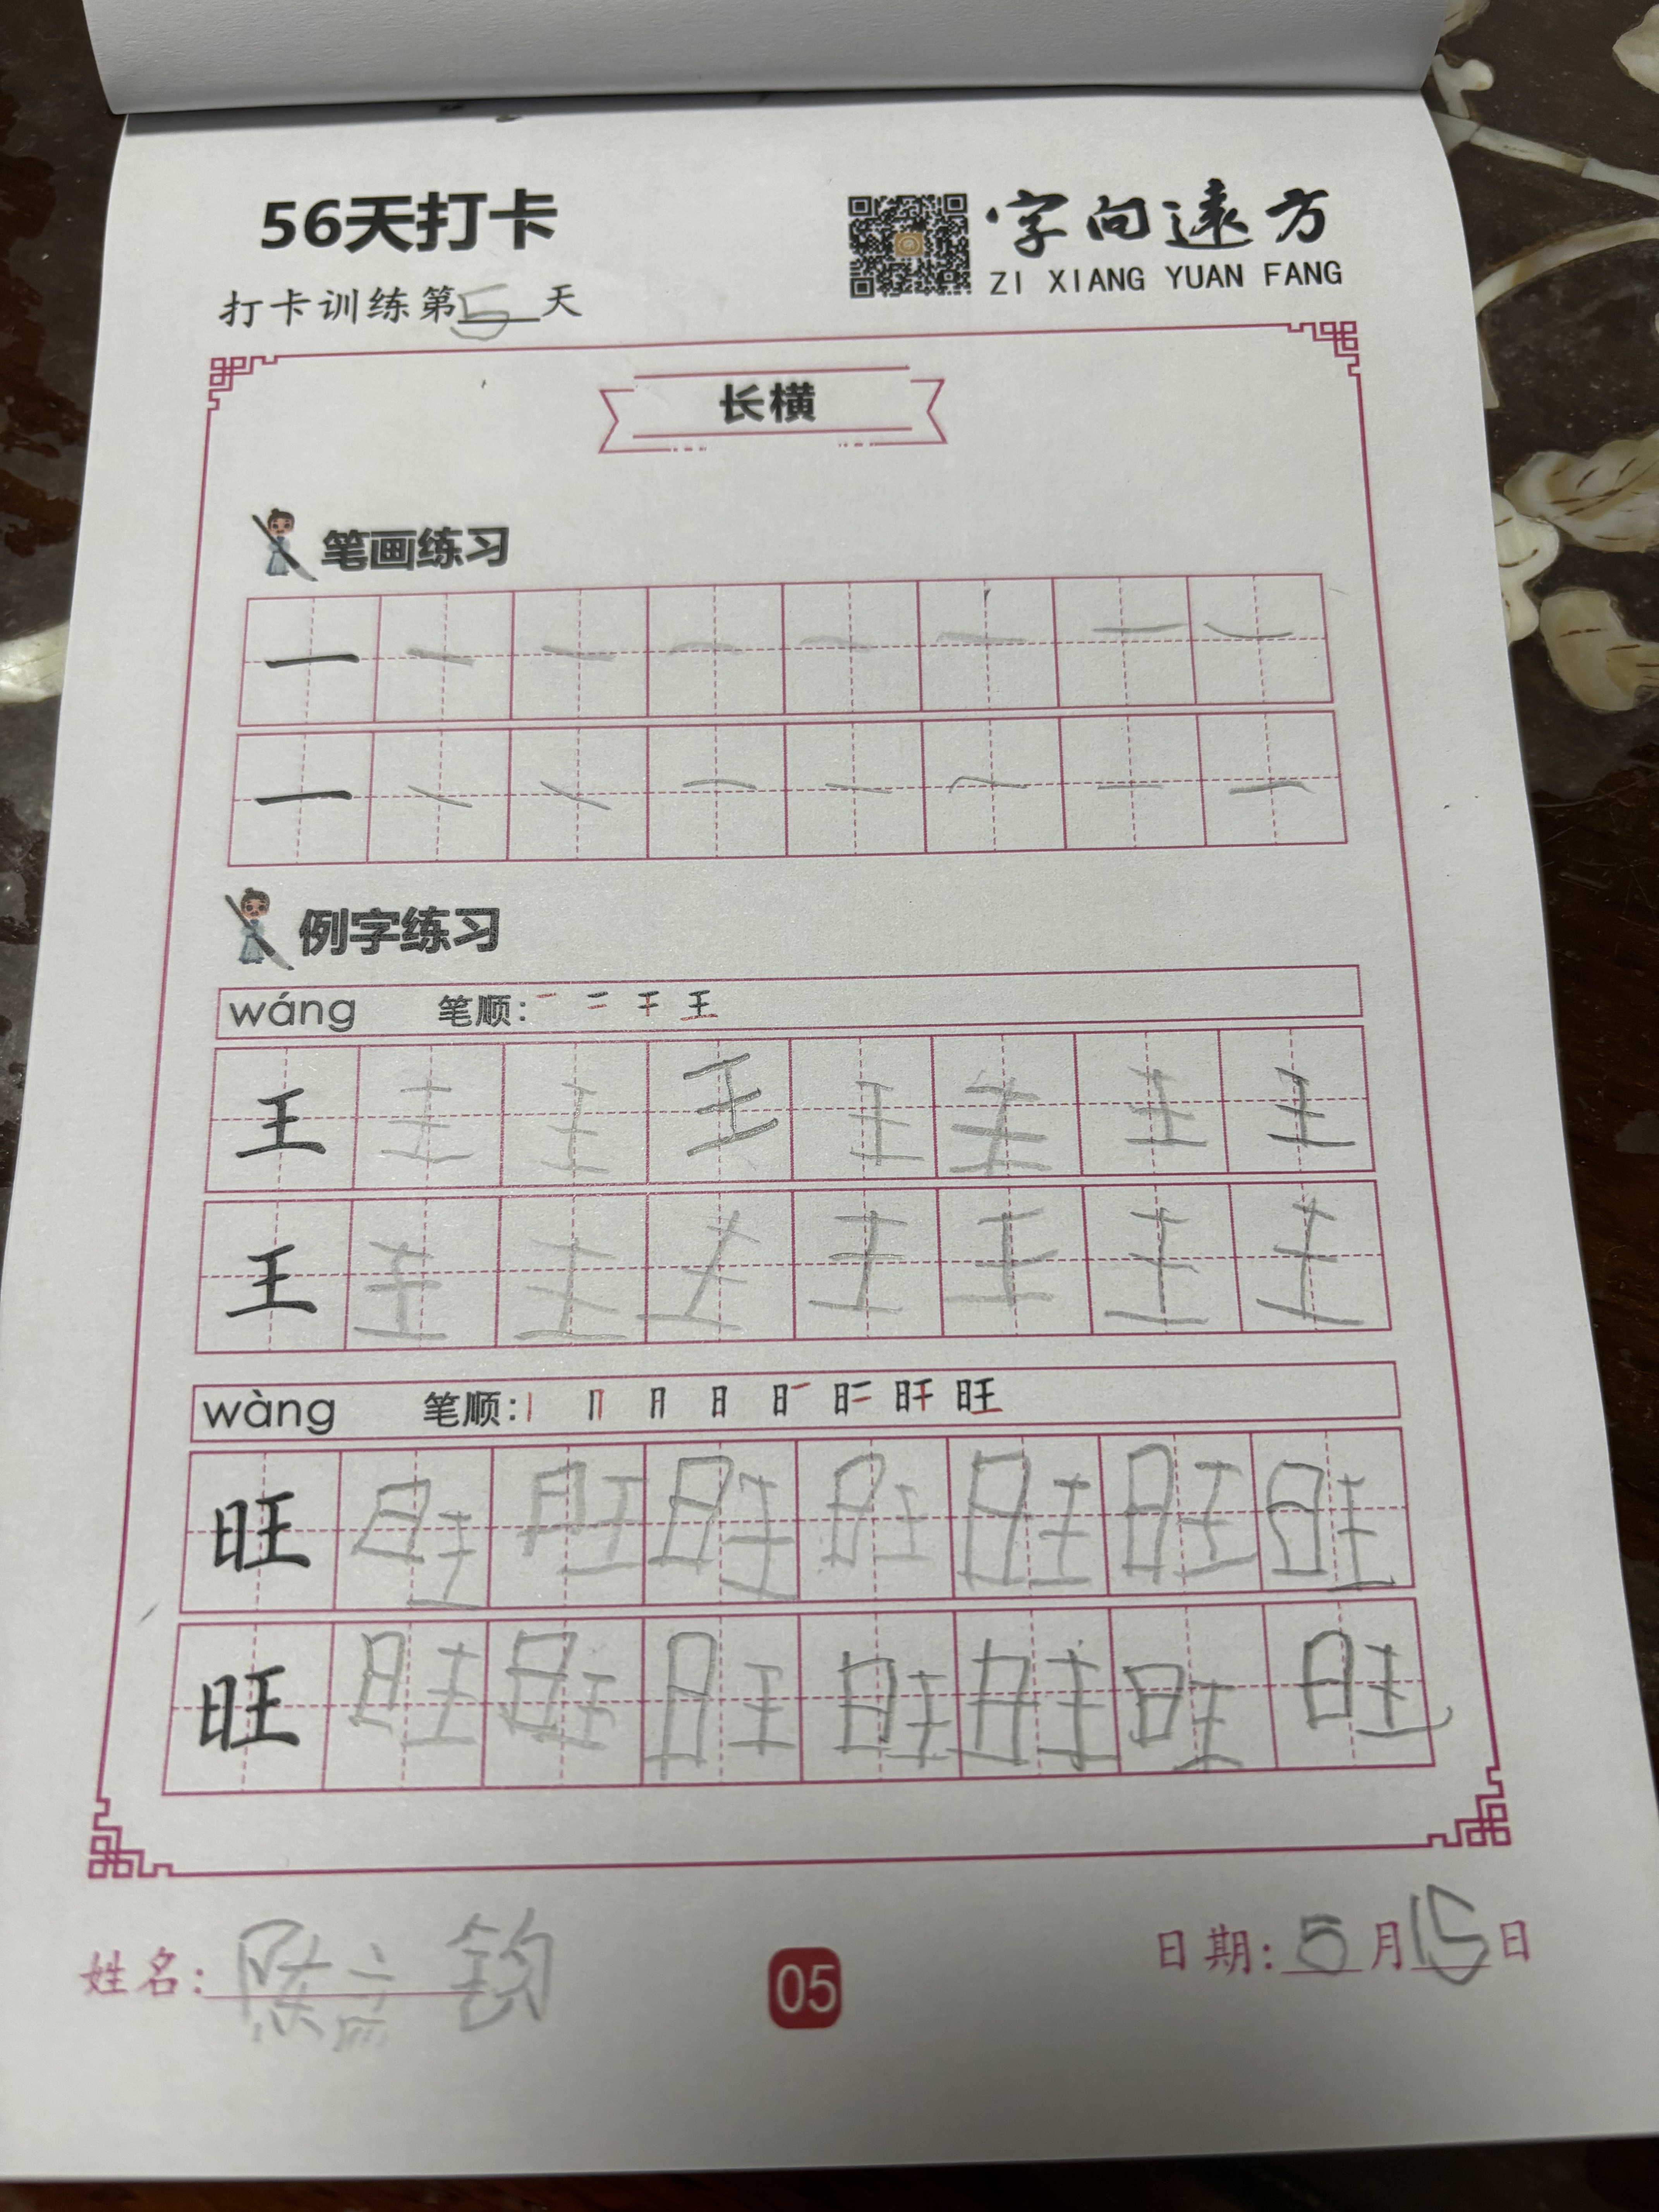 56天打卡
字向遠方
ZI XIANG YUAN FANG
打卡训练第5天
长横
笔画练习
一 一 一 一 一 一 一 一
一 一 一 一 一 一 一 一
例字练习
wáng 笔顺:
王 王 王 王 王 王 王 王
王 王 王 王 王 王 王 王
wàng 笔顺:
旺 旺 旺 旺 旺 旺 旺 旺
旺 旺 旺 旺 旺 旺 旺 旺
姓名: 陈 钧
05
日期: 5月15日